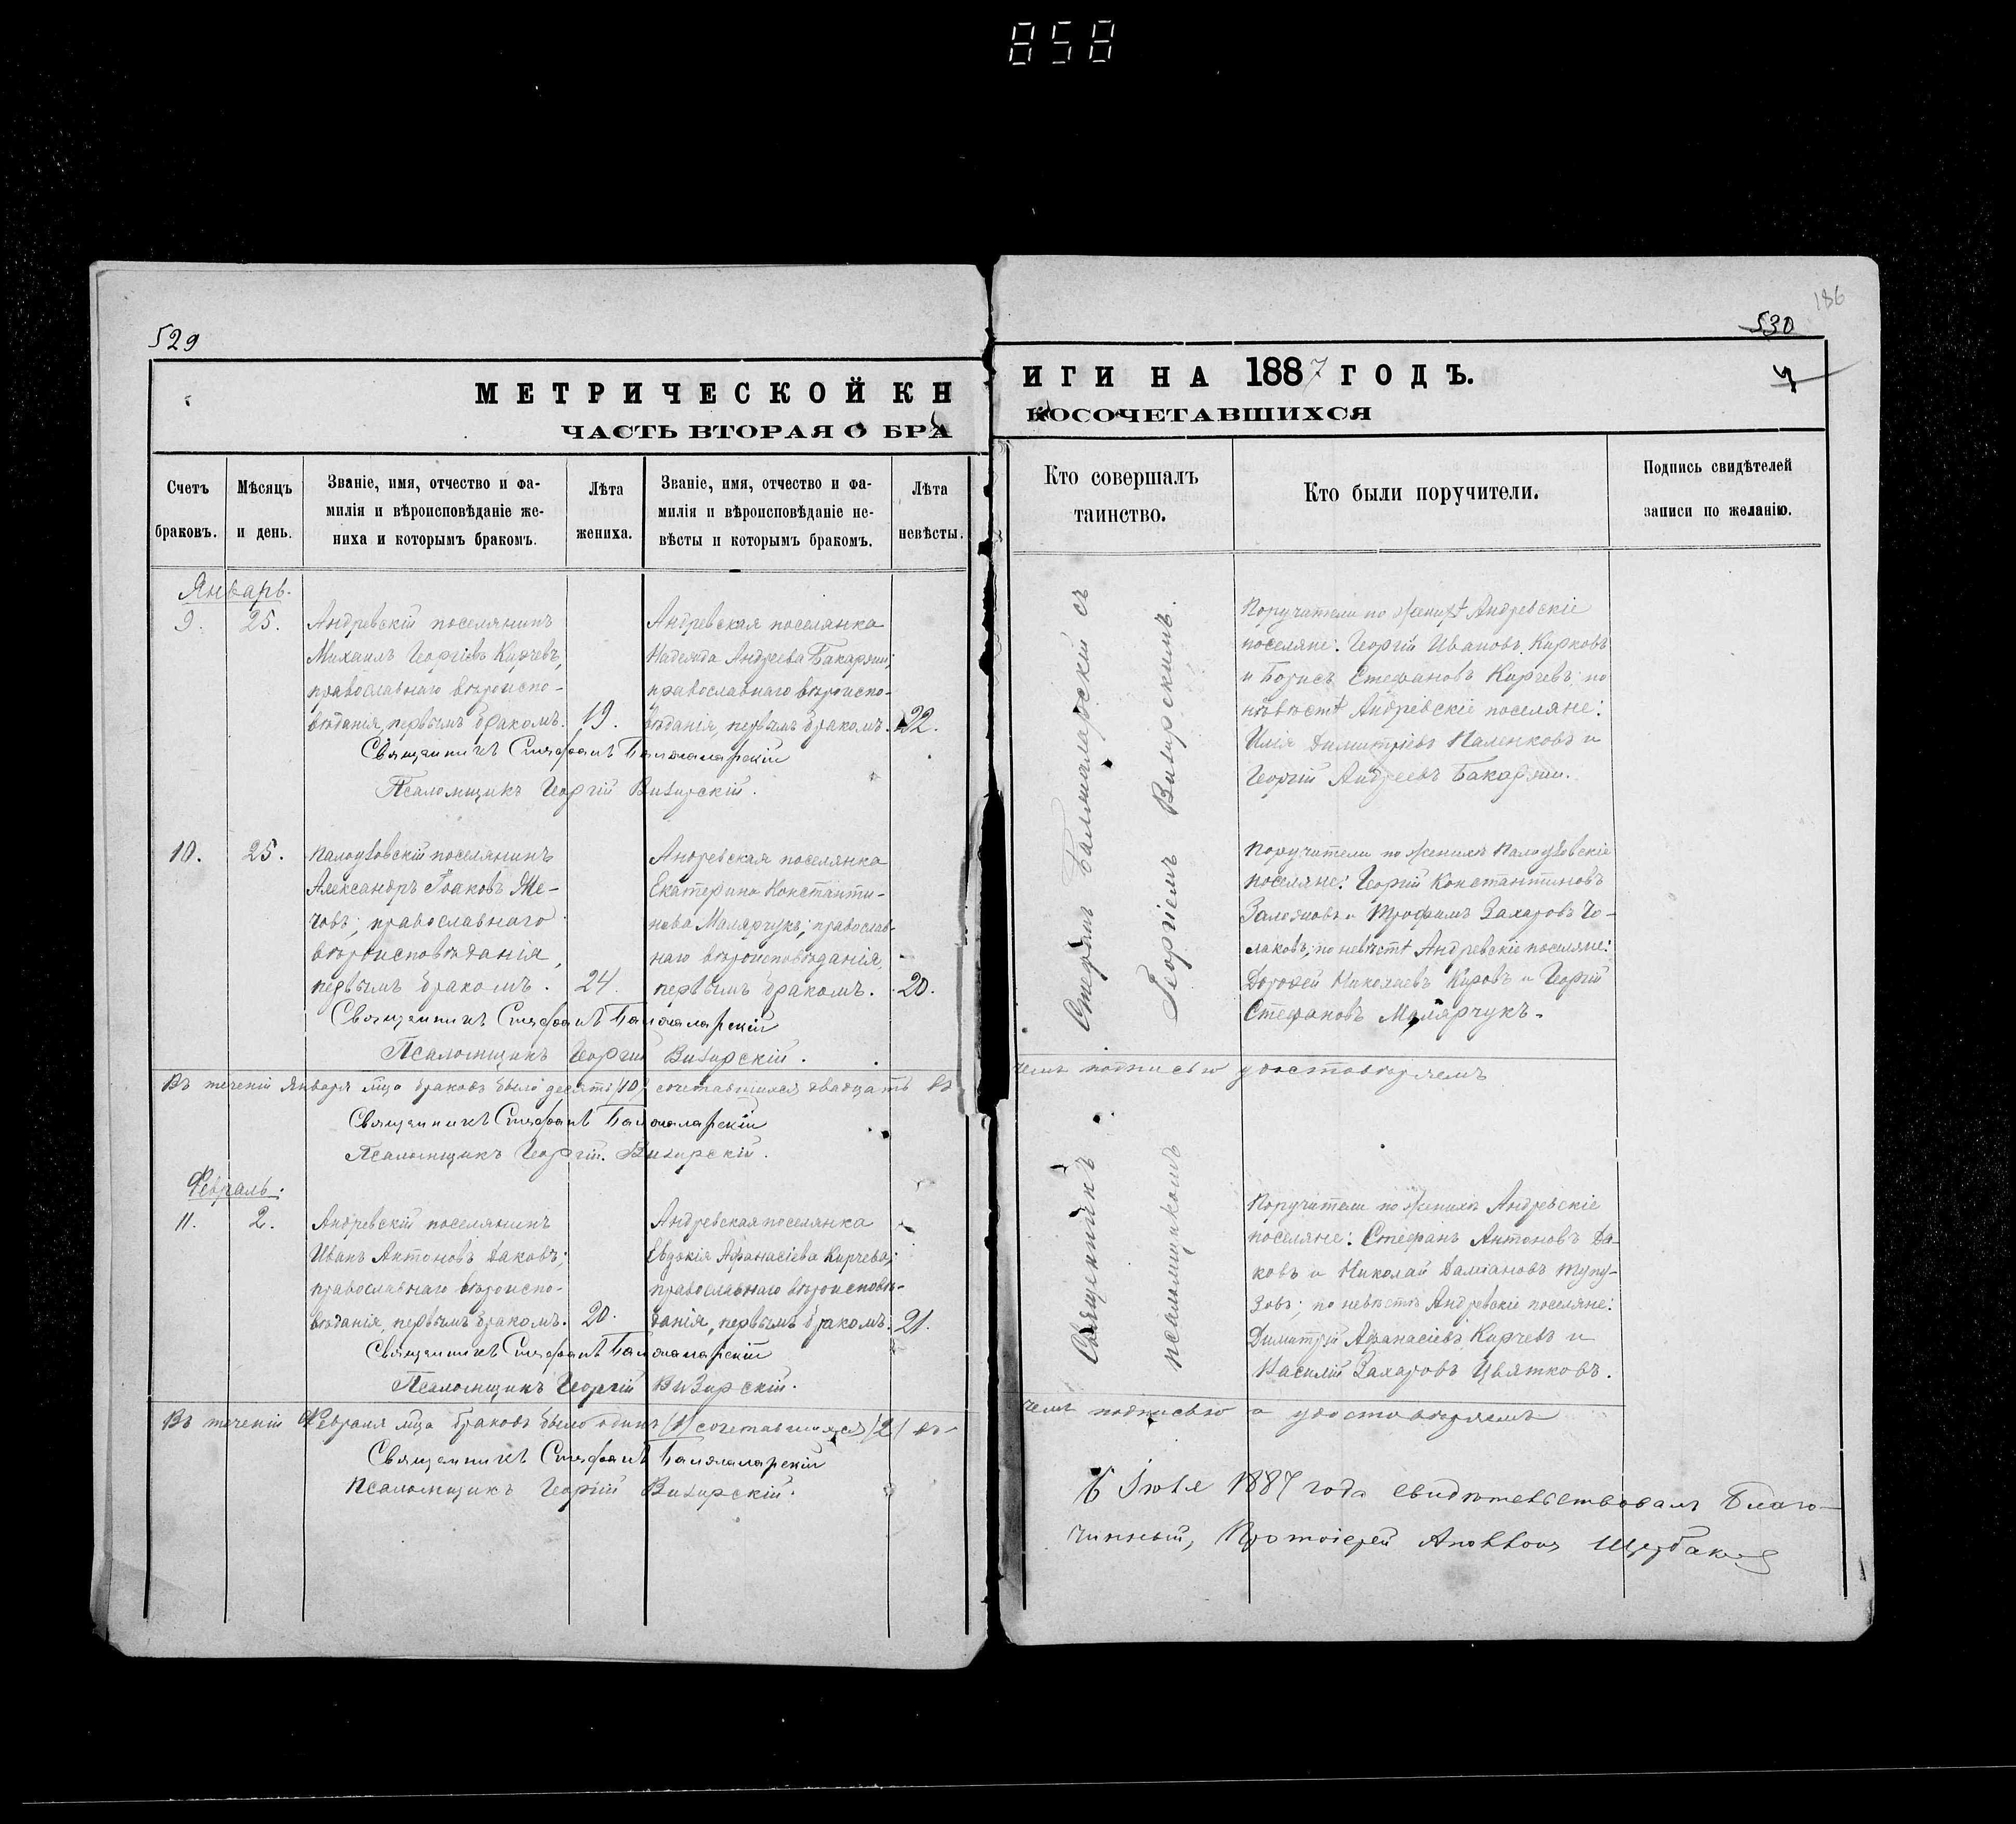 858
529
МЕТРИЧЕСКОЙ КН
ЧАСТЬ ВТОРАЯ О БРА
Счетъ браковъ.
Мѣсяцъ и день.
Званіе, имя, отчество и фа-
милія и вѣроисповѣданіе же-
ниха и которымъ бракомъ.
Лѣта жениха.
Званіе, имя, отчество и фа-
милія и вѣроисповѣданіе не-
вѣсты и которымъ бракомъ.
Лѣта невѣсты.
Январь.
9. 25.
Андревскій поселянинъ
Михаилъ Георгіевъ Кирчевъ,
православнаго вѣроиспо-
вѣданія, первымъ бракомъ. 19.
Андревская поселянка
Надежда Андреева
православнаго вѣроиспо-
вѣданія, первымъ бракомъ. 22.
Священникъ Стефанъ
Псаломщикъ Георгій Визирскій.
10. 25.
поселянинъ
Александръ Іоаковъ Ме-
човъ; православнаго
вѣроисповѣданія,
первымъ бракомъ. 24.
Андревская поселянка
Екатерина Константи-
нова Малярчукъ; православ-
наго вѣроисповѣданія,
первымъ бракомъ. 20.
Священникъ Стефанъ
Псаломщикъ Георгій Визирскій.
Въ теченіи Января м҃ца браковъ было десять /10/ сочетавшихся двадцать въ
Священникъ Стефанъ
Псаломщикъ Георгій Визирскій.
Февраль.
11. 2.
Андревскій поселянинъ
Иванъ Антоновъ Даковъ;
православнаго вѣроиспо-
вѣданія, первымъ бракомъ. 20.
Андревская поселянка
Евдокія Афанасіева Кирчева;
православнаго вѣроисповѣ-
данія, первымъ бракомъ. 21.
Священникъ Стефанъ
Псаломщикъ Георгій Визирскій.
Въ теченіи Февраля м҃ца браковъ было одинъ /1/ сочетавшихся /2/ въ
Священникъ Стефанъ
Псаломщикъ Георгій Визирскій.
186
530
ИГИ НА 1887 ГОДЪ.
КОСОЧЕТАВШИХСЯ
Кто совершалъ
таинство.
Кто были поручители.
Подпись свидѣтелей
записи по желанію.
Священникъ Стефанъ съ
псаломщикомъ Георгіемъ Визирскимъ.
Поручители по женихѣ Андревскіе
поселяне: Георгій Ивановъ Кирковъ
и Борисъ Стефановъ Кирчевъ; по
невѣстѣ Андревскіе поселяне:
Илія Димитріевъ Паленковъ и
Георгій Андреевъ
Поручители по женихѣ
поселяне: Георгій Константиновъ
и Трофимъ Захаровъ Чо-
лаковъ; по невѣстѣ Андревскіе поселяне:
Дорофей Николаевъ Кировъ и Георгій
Стефановъ Малярчукъ.
чемъ подписью удостовѣряемъ
Поручители по женихѣ Андревскіе
поселяне: Стефанъ Антоновъ Да-
ковъ и Николай Даміановъ Тупу-
зовъ; по невѣстѣ Андревскіе поселяне:
Димитрій Афанасіевъ Кирчевъ и
Василій Захаровъ Цвятковъ.
чемъ подписью и удостовѣряемъ
Іюля 1887 года свидѣтельствовалъ Благо-
чинный, Протоіерей Аполлонъ Щербаковъ